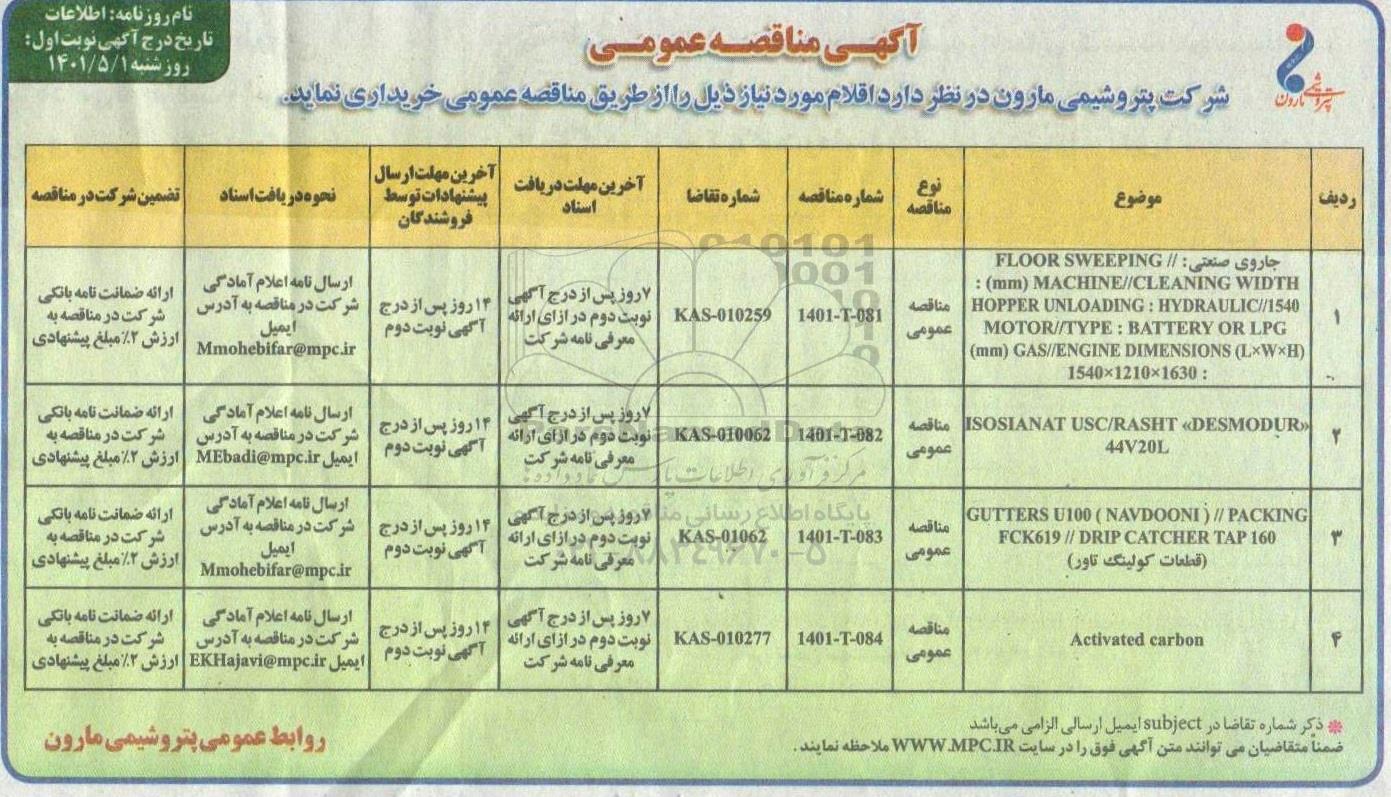 نام روزنامه: اطلاعات
تاریخ درج آگهی نوبت اول:
روز شنبه ۱۴۰۱/۵/۱
آگهی مناقصه عمومی
پتروشیمی مارون
شرکت پتروشیمی مارون در نظر دارد اقلام مورد نیاز ذیل را از طریق مناقصه عمومی خریداری نماید.
ردیف
موضوع
نوع
مناقصه
شماره مناقصه
شماره تقاضا
آخرین مهلت دریافت
اسناد
آخرین مهلت ارسال
پیشنهادات توسط
فروشندگان
نحوه دریافت اسناد
تضمین شرکت در مناقصه
۱
جاروی صنعتی: // FLOOR SWEEPING
MACHINE//CLEANING WIDTH (mm) :
1540//HOPPER UNLOADING : HYDRAULIC
MOTOR//TYPE : BATTERY OR LPG
GAS//ENGINE DIMENSIONS (L×W×H) (mm)
: 1540×1210×1630
مناقصه
عمومی
1401-T-081
KAS-010259
۷ روز پس از درج آگهی
نوبت دوم در ازای ارائه
معرفی نامه شرکت
۱۴ روز پس از درج
آگهی نوبت دوم
ارسال نامه اعلام آمادگی
شرکت در مناقصه به آدرس
ایمیل
Mmohebifar@mpc.ir
ارائه ضمانت نامه بانکی
شرکت در مناقصه به
ارزش ۲٪ مبلغ پیشنهادی
۲
ISOSIANAT USC/RASHT «DESMODUR»
44V20L
مناقصه
عمومی
1401-T-082
KAS-010062
۷ روز پس از درج آگهی
نوبت دوم در ازای ارائه
معرفی نامه شرکت
۱۴ روز پس از درج
آگهی نوبت دوم
ارسال نامه اعلام آمادگی
شرکت در مناقصه به آدرس
ایمیل MEbadi@mpc.ir
ارائه ضمانت نامه بانکی
شرکت در مناقصه به
ارزش ۲٪ مبلغ پیشنهادی
۳
GUTTERS U100 ( NAVDOONI ) // PACKING
FCK619 // DRIP CATCHER TAP 160
(قطعات کولینگ تاور)
مناقصه
عمومی
1401-T-083
KAS-01062
۷ روز پس از درج آگهی
نوبت دوم در ازای ارائه
معرفی نامه شرکت
۱۴ روز پس از درج
آگهی نوبت دوم
ارسال نامه اعلام آمادگی
شرکت در مناقصه به آدرس
ایمیل
Mmohebifar@mpc.ir
ارائه ضمانت نامه بانکی
شرکت در مناقصه به
ارزش ۲٪ مبلغ پیشنهادی
۴
Activated carbon
مناقصه
عمومی
1401-T-084
KAS-010277
۷ روز پس از درج آگهی
نوبت دوم در ازای ارائه
معرفی نامه شرکت
۱۴ روز پس از درج
آگهی نوبت دوم
ارسال نامه اعلام آمادگی
شرکت در مناقصه به آدرس
ایمیل EKHajavi@mpc.ir
ارائه ضمانت نامه بانکی
شرکت در مناقصه به
ارزش ۲٪ مبلغ پیشنهادی
ذکر شماره تقاضا در subject ایمیل ارسالی الزامی می‌باشد
ضمناً متقاضیان می توانند متن آگهی فوق را در سایت WWW.MPC.IR ملاحظه نمایند .
روابط عمومی پتروشیمی مارون